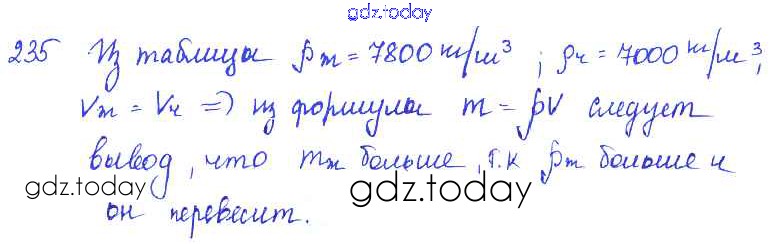 gdz.today
235 Из таблицы ρж = 7800 кг/м³ ; ρч = 7000 кг/м³,
Vж = Vч => из формулы m = ρV следует
вывод, что mж больше, т.к ρж больше и
gdz.today
gdz.today
он перевесит.